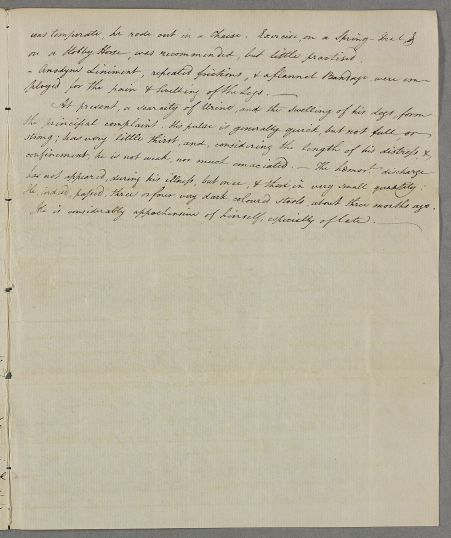 was temperate, he rode out in a Chaise. Exercise, on a Spring-Seat &
on a Hobby Horse, was recommended, but little practised.
- Anodyne Liniment, repeated frictions, & a flannel Bandage were em-
ployed for the pain & swelling of the Legs. —
At present, a scarcity of Urine, and the swelling of his Legs, form
the principal complaint. His pulse is generally quick but not full or
strong; has very little thirst, and, considering the length of his distress &
confinement, he is not weak, nor much emaciated. — The hæmorl. discharge
has not appeared, during his illness, but once, & that in very small quantity:
He, indeed, passed, three or four very dark coloured stools, about three months ago.
He is considerably apprehensive of himself, especially of late. —